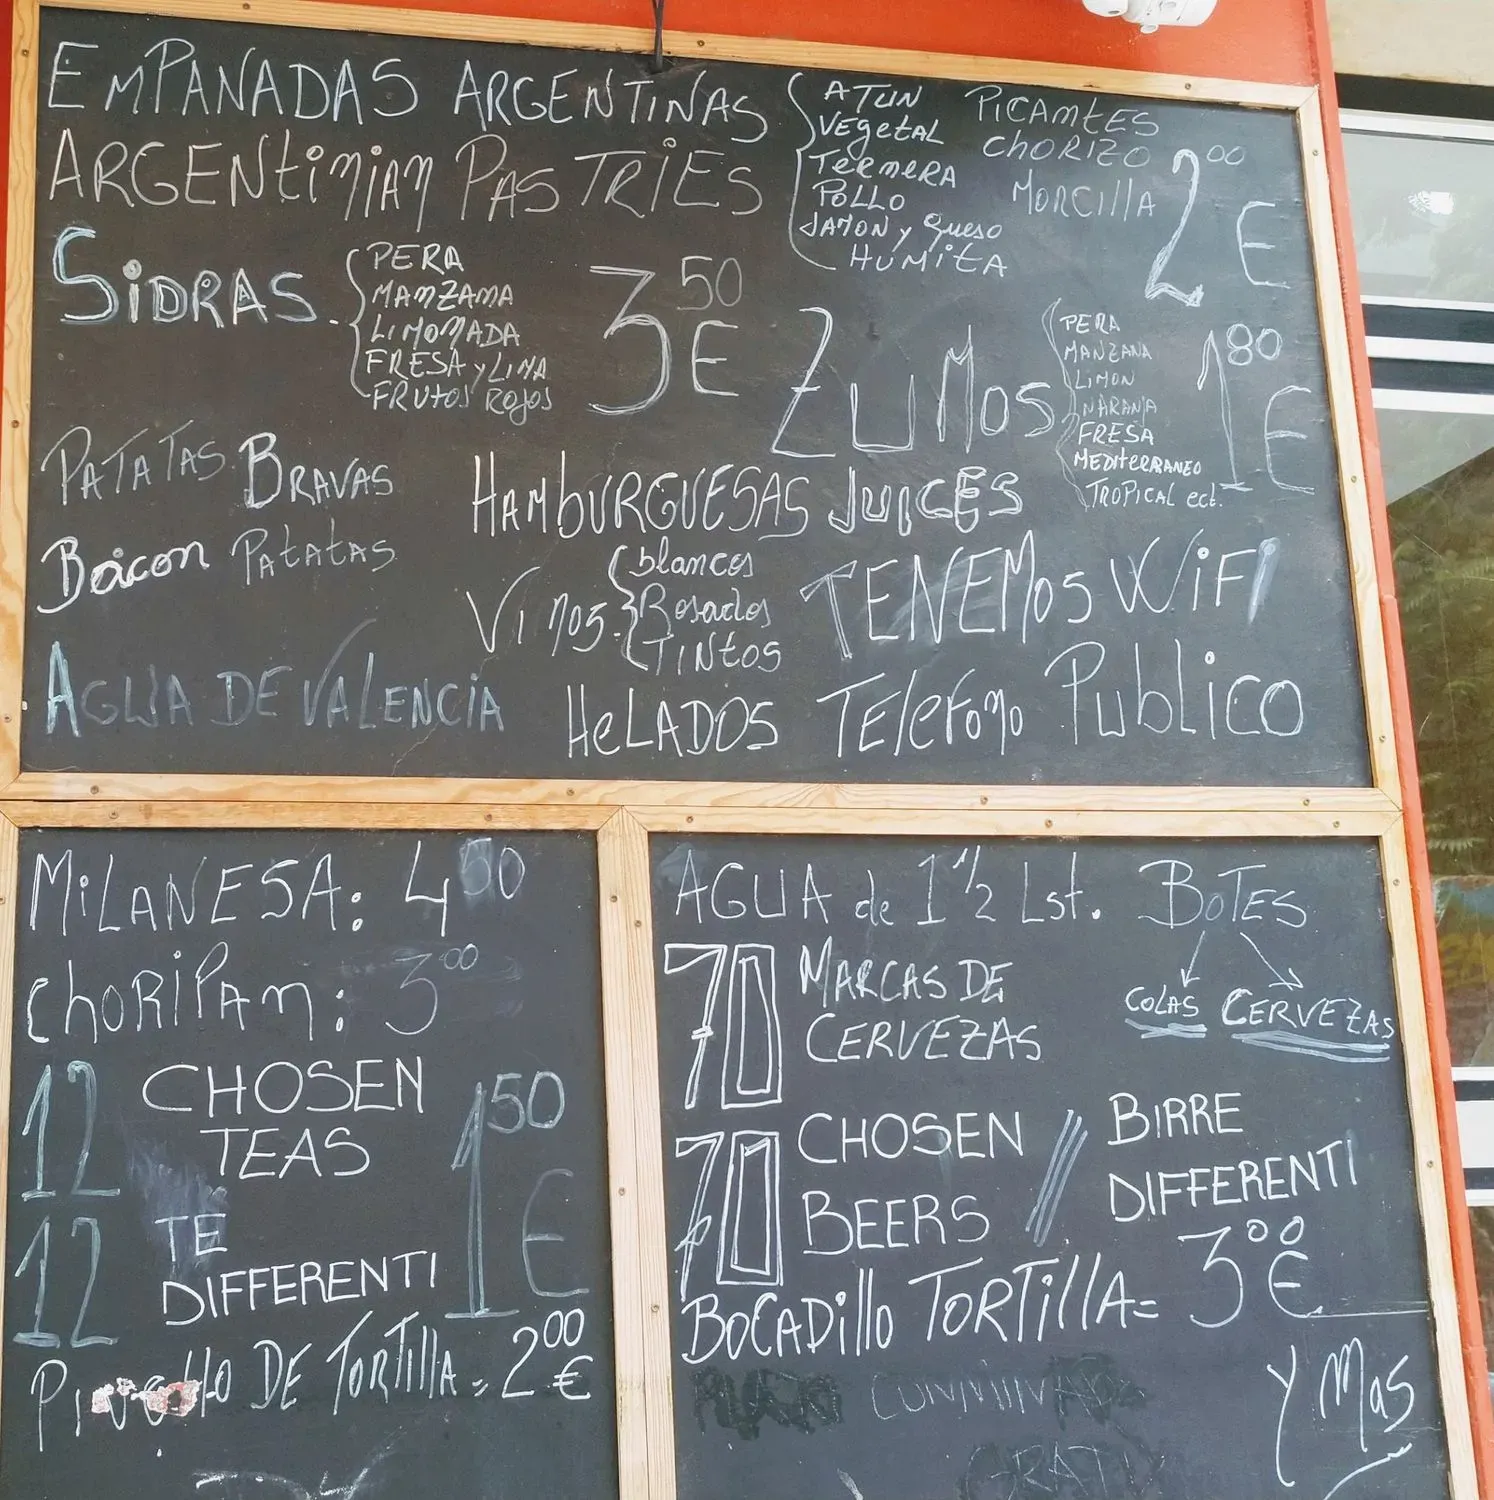 EMPANADAS ARGENTINAS
ARGENTINIAN PASTRIES
ATUN
VEGETAL
TERNERA
POLLO
JAMON y Queso
HUMITA
PICANTES
CHORIZO
MORCILLA
2 00 E
SIDRAS
PERA
MANZANA
LIMONADA
FRESA y LIMA
FRUTOS ROJOS
3 50 E
ZUMOS
JUICES
PERA
MANZANA
LIMON
NARANJA
FRESA
MEDITERRANEO
TROPICAL ect.
1 80 E
PATATAS BRAVAS
Bacon PATATAS
AGUA DE VALENCIA
HAMBURGUESAS
VINOS
blancos
Rosados
TINTOS
HELADOS
TENEMOS WIFI
TELEFONO PUBLICO
MILANESA: 4 50
CHORIPAN: 3 00
12 CHOSEN
TEAS
12 TE
DIFFERENTI
1 50 E
DE TORTILLA = 2 00 €
AGUA de 1 1/2 Lst.
BOTES
COLAS CERVEZAS
70 MARCAS DE
CERVEZAS
70 CHOSEN
BEERS
// BIRRE
DIFFERENTI
BOCADILLO TORTILLA = 3 00 €
Y MAS